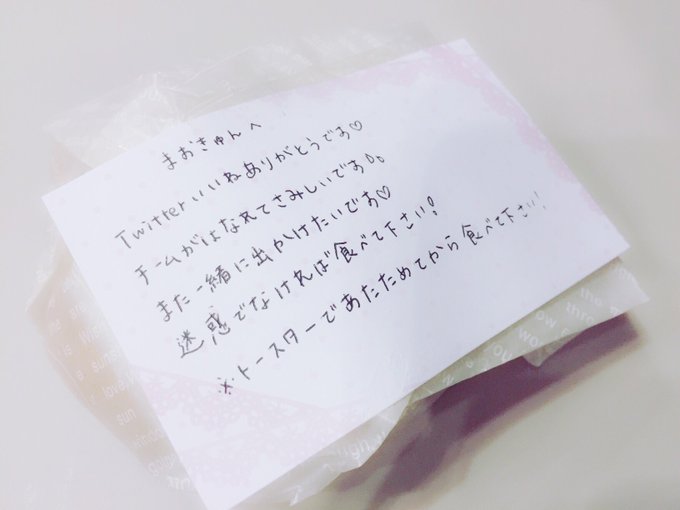 まおきゅんへ
Twitterいいねありがとうです♡
チームがはなれてさみしいです。。
また一緒に出かけたいです♡
迷惑でなければ食べて下さい!
※トースターであたためてから食べて下さい!